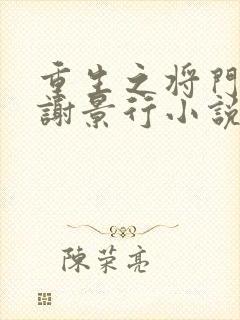 重生之将門
謝景行小説
陳荣亮